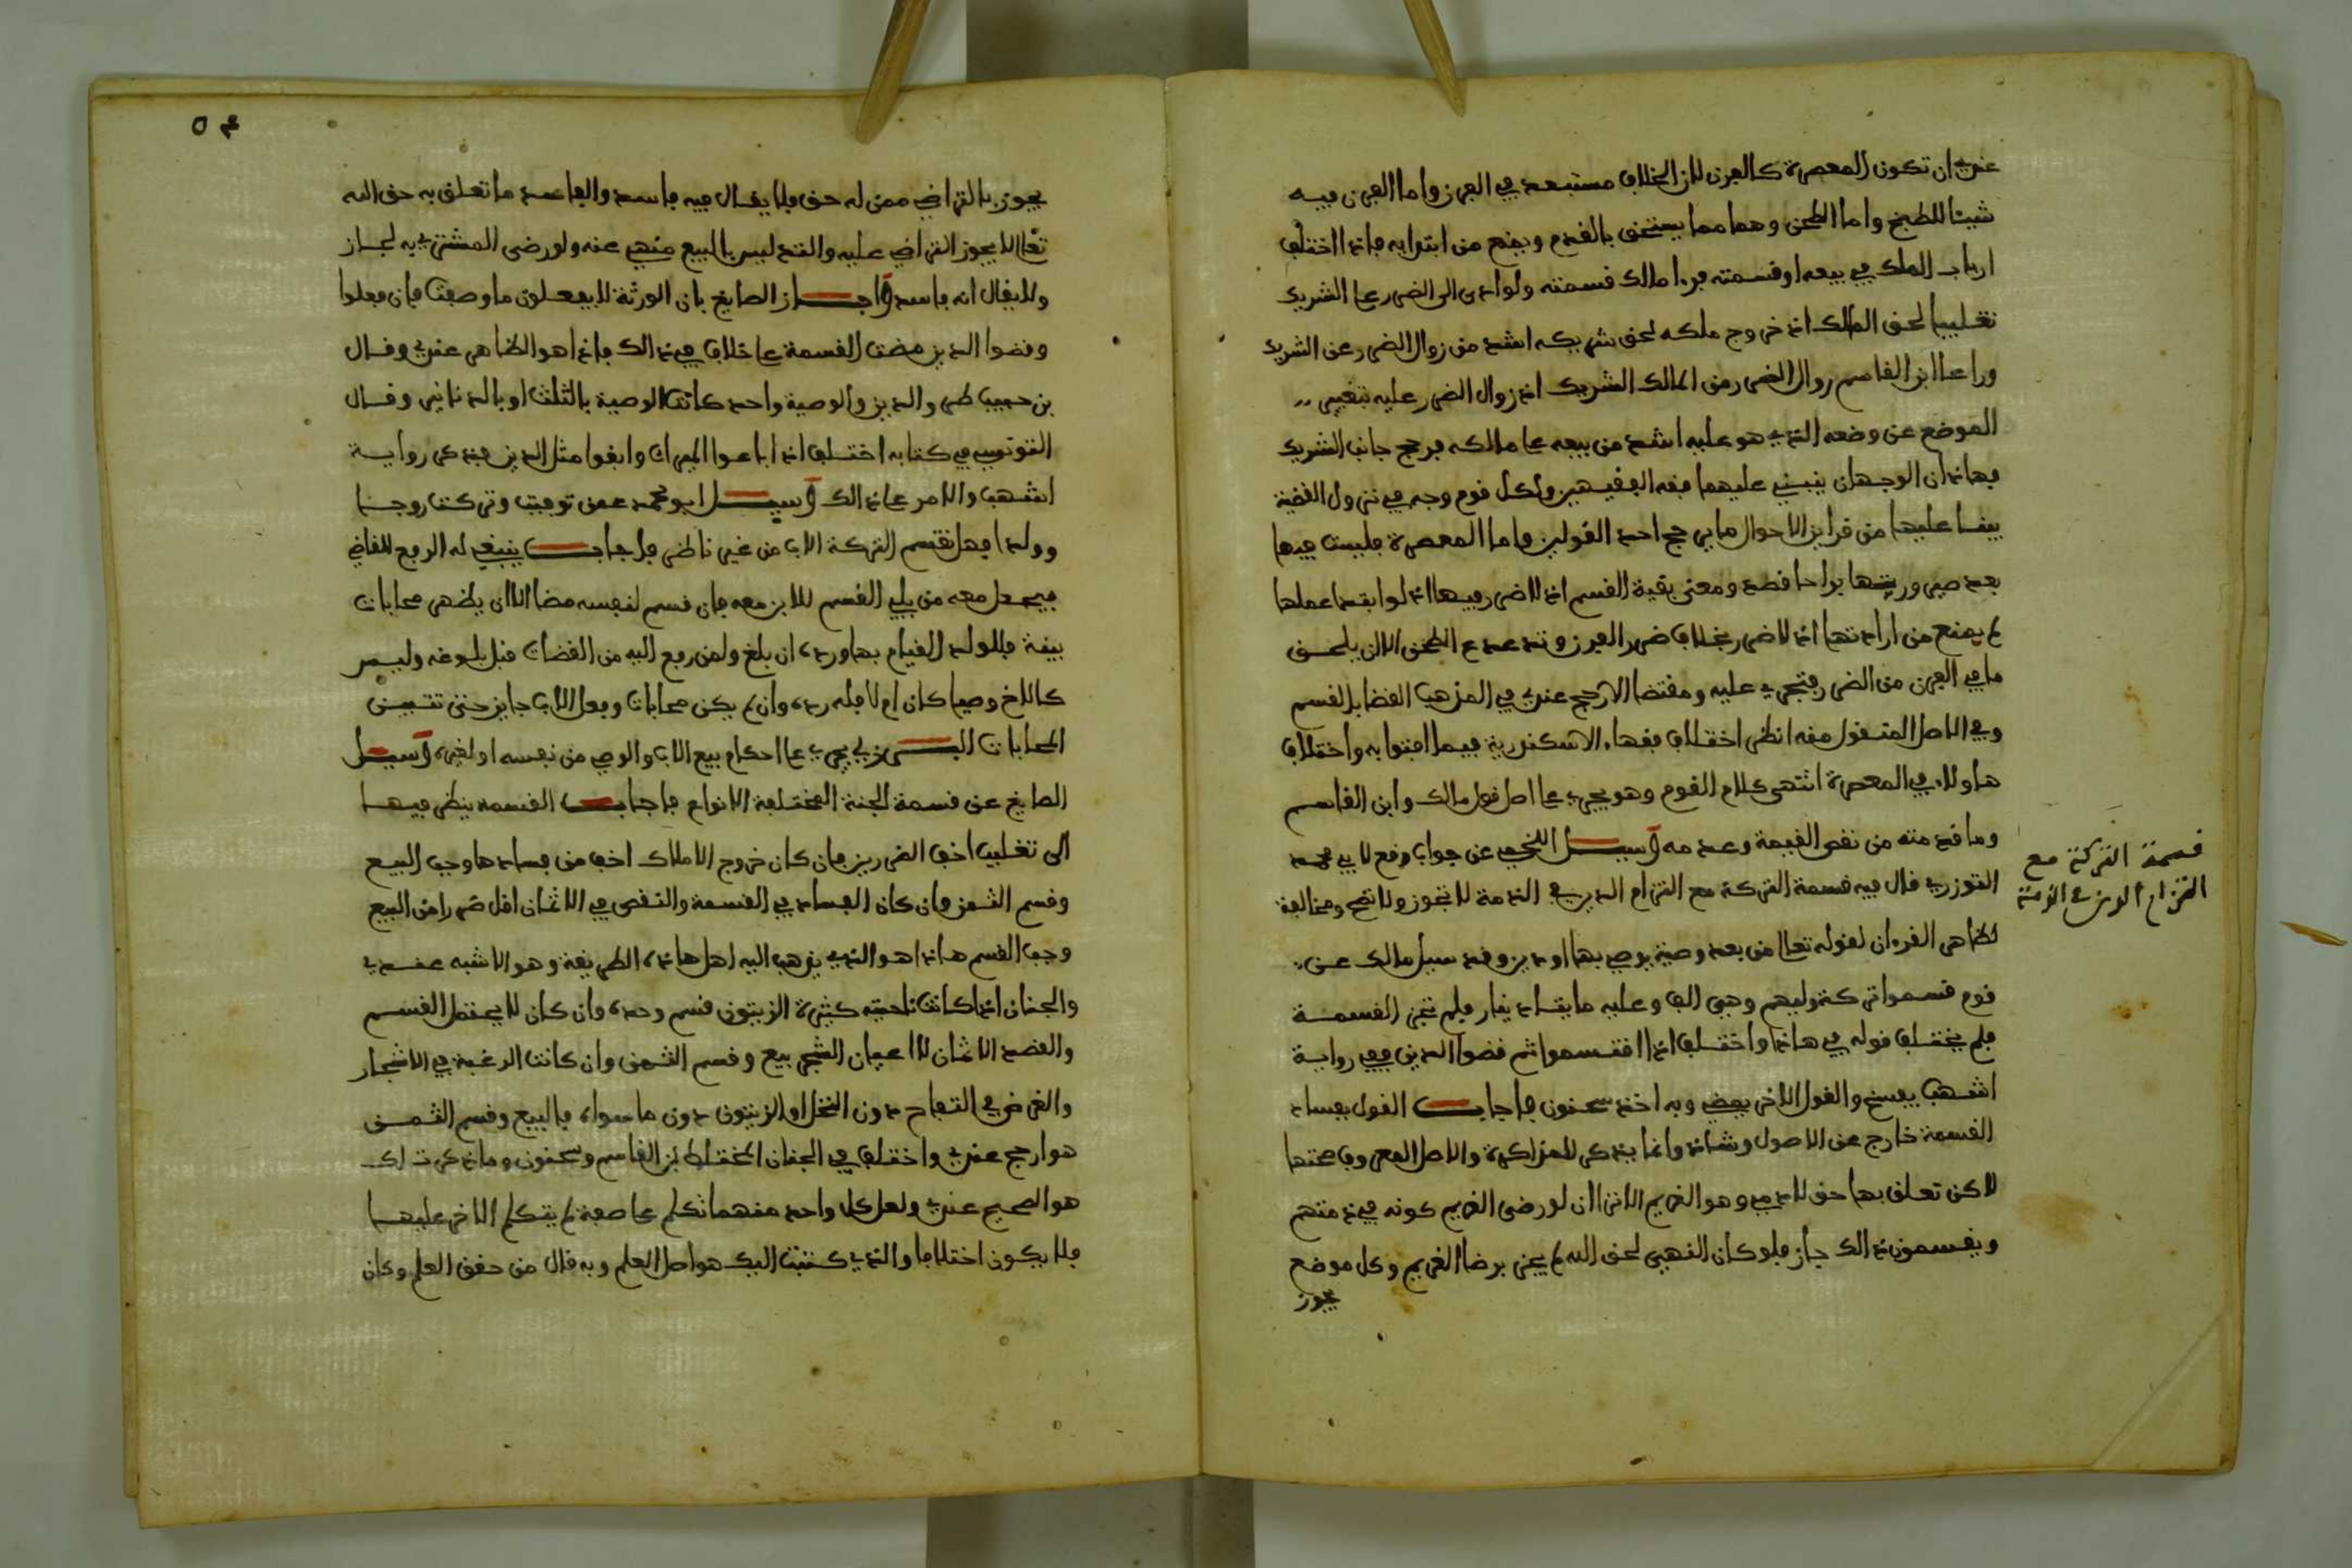 عندي ان تكون المعصرة كالفرن لان الخلاف مستبعد في الفرن واما الفرن فيه
شيئا للطبخ واما الطحن وهما مما يستحق بالقدم ويمنع من ابتدايه فاذا اختلف
ارباب الملك في بيعه او قسمته فرءا مالك قسمته ولو ادى الى الضرر على الشريك
تغليبا لحق المالك اذ خروج ملكه لحق شريكه اشد من زوال الضرر عن الشريك
وراعا ابن القاسم زوال الضرر من المالك الشريك اذ زوال الضرر عليه بتغيير
الموضع عن وضعه الذي هو عليه اشد من بيعه على مالكه فرجح جانب الشريك
فهاذان الوجهان ينبني عليهما فقه الفقيهين ولكل قوم وجه في نزول القضية
بينا عليها من قراين الاحوال ما يرجح احد القولين واما المعصرة فليست فيها
بعد صير ورثتها براحا قصد ومعنى بقية القسم اذ لا ضرر فيها اذ لو ابتدا عملها
لم يمنع من ارادتها اذ لا ضرر بخلاف ضرر الفرن وتدعدع الطحن الا ان يلحق
ما في الفرن من الضرر فتجري عليه ومقتضا الارجح عندي في المذهب القضا بالقسم
وفي الاصل المنقول منه انظر اختلاف فقهاء الاسكندرية فيما افتوا به واختلاف
هاولاء في المعصرة انتهى كلام القوم وهو يجري على اصل قول مالك وابن القاسم
وما قدمته من نقص القيمة وعدمه وسيل اللخمي عن جواب وقع لابي محمد
التوزري قال فيه قسمة التركة مع التزام الدين في الذمة لا تجوز ولا تصح ومخالفة
لظاهر القرءان لقوله تعالى من بعد وصية يوصي بها او دين وقد سيل مالك عن
قوم قسموا تركة وليهم وهي الف وعليه ماية دينار فلم تجز القسمة
فلم يختلف قوله في هاذا واختلف اذا اقتسموا ثم قضوا الدين ففي رواية
اشهب يفسخ والقول الاخر يمضي وبه اخذ سحنون فاجاب القول بفساد
القسمة خارج عن الاصول وشاذ وانما يذكر للمذاكرة والاصل المعروف صحتها
لاكن تعلق بها حق لادمي وهو الغريم الا ترى ان لو رضى الغريم كونه في ذمتهم
ويقسمون ذالك جاز فلو كان النهي لحق الله لم يجز برضا الغريم وكل موضع
يجوز
قسمة التركة مع
التزام الدين في الذمة
يجوز بالتراضي ممن له حق فلا يقال فيه فاسد والفاسد ما تعلق به حق الله
تعالى لا يجوز التراضي عليه والتدليس بالبيع منهي عنه ولو رضى المشتري به لجاز
ولا يقال انه فاسد واجاز الصايغ بان الورثة لا يفعلون ما وصفت فان فعلوا
وقضوا الدين مضت القسمة على خلاف في ذالك فاذا هو الظاهر عندي وقال
بن حبيب طرو الدين والوصية واحد كانت الوصية بالثلث او بالدنانير وقال
التونسي في كتابه اختلف اذا باعوا الميراث وابقوا مثل الدين فيذكر رواية
اشهب والامر على ذالك وسيل ابو محمد عمن توفيت وتركت زوجا
وولدا فهل تقسم التركة الاب من غير ناظر فاجاب ينبغي له الرفع للقاضي
فيجعل معه من يلي القسم للابن معه فان قسم لنفسه مضا الا ان يظهر محابات
بينة فللولد القيام بها ورده ان بلغ ولمن رفع اليه من القضات قبل بلوغه وليس
كالاخ وصيا كان ام لا فله رده وان لم يكن محابات وفعل الاب جايز حتى تتبين
المحابات البرزلي يجري على احكام بيع الاب والوصي من نفسه او لغيره وسيل
الصايغ عن قسمة الجنة المختلفة الانواع فاجاب القسمه ينظر فيها
الى تغليب اخف الضررين فان كان خروج الاملاك اخف من فسادها وجب البيع
وقسم الثمن وان كان الفساد في القسمة والنقص في الاثمان اقل ضررا من البيع
وجب القسم هاذا هو الذي يذهب اليه اهل هاذه الطريقة وهو الاشبه عندي
والجنان اذا كانت ناحيته كثيرة الزيتون قسم وحده وان كان لا يحتمل القسم
والقصد الاثمان لا اعيان الشجر بيع وقسم الثمن وان كانت الرغبة في الاشجار
والغرض في التفاح دون النخل او الزيتون دون ما سواه فالبيع وقسم الثمن
هو ارجح عندي واختلف في الجنان المختلط بن القاسم وسحنون وما ذكرت لك
هو الصحيح عندي ولعل كل واحد منهما تكلم على صفة لم يتكلم الاخر عليها
فلا يكون اختلافا والذي كتبت اليك هو اصل العلم وبه قال من حقق العلم وكان